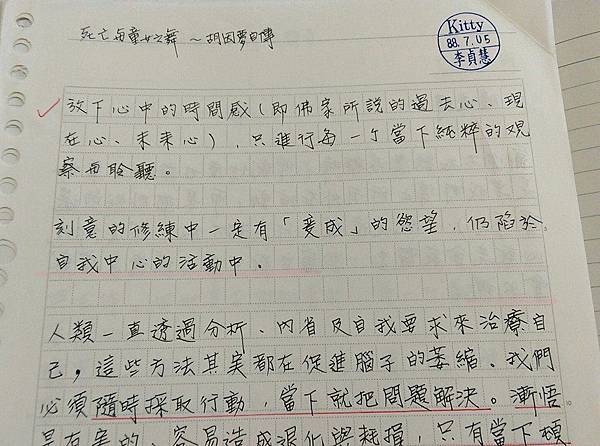 死亡与童女之舞 ~胡因夢自傳
Kitty
88.7.05
李貞慧
放下心中的時間感(即佛家所說的過去心、現
在心、未来心),只進行每一个當下純粹的观
察与聆聽。
刻意的修練中一定有「变成」的慾望,仍陷於
自我中心的活動中。
人類一直透過分析、內省及自我要求來治療自
己,這些方法其实都在促進腦子的萎縮。我們
必須隨時採取行動,當下就把問題解決。漸悟
是有害的、容易造成退化與耗損,只有當下頓